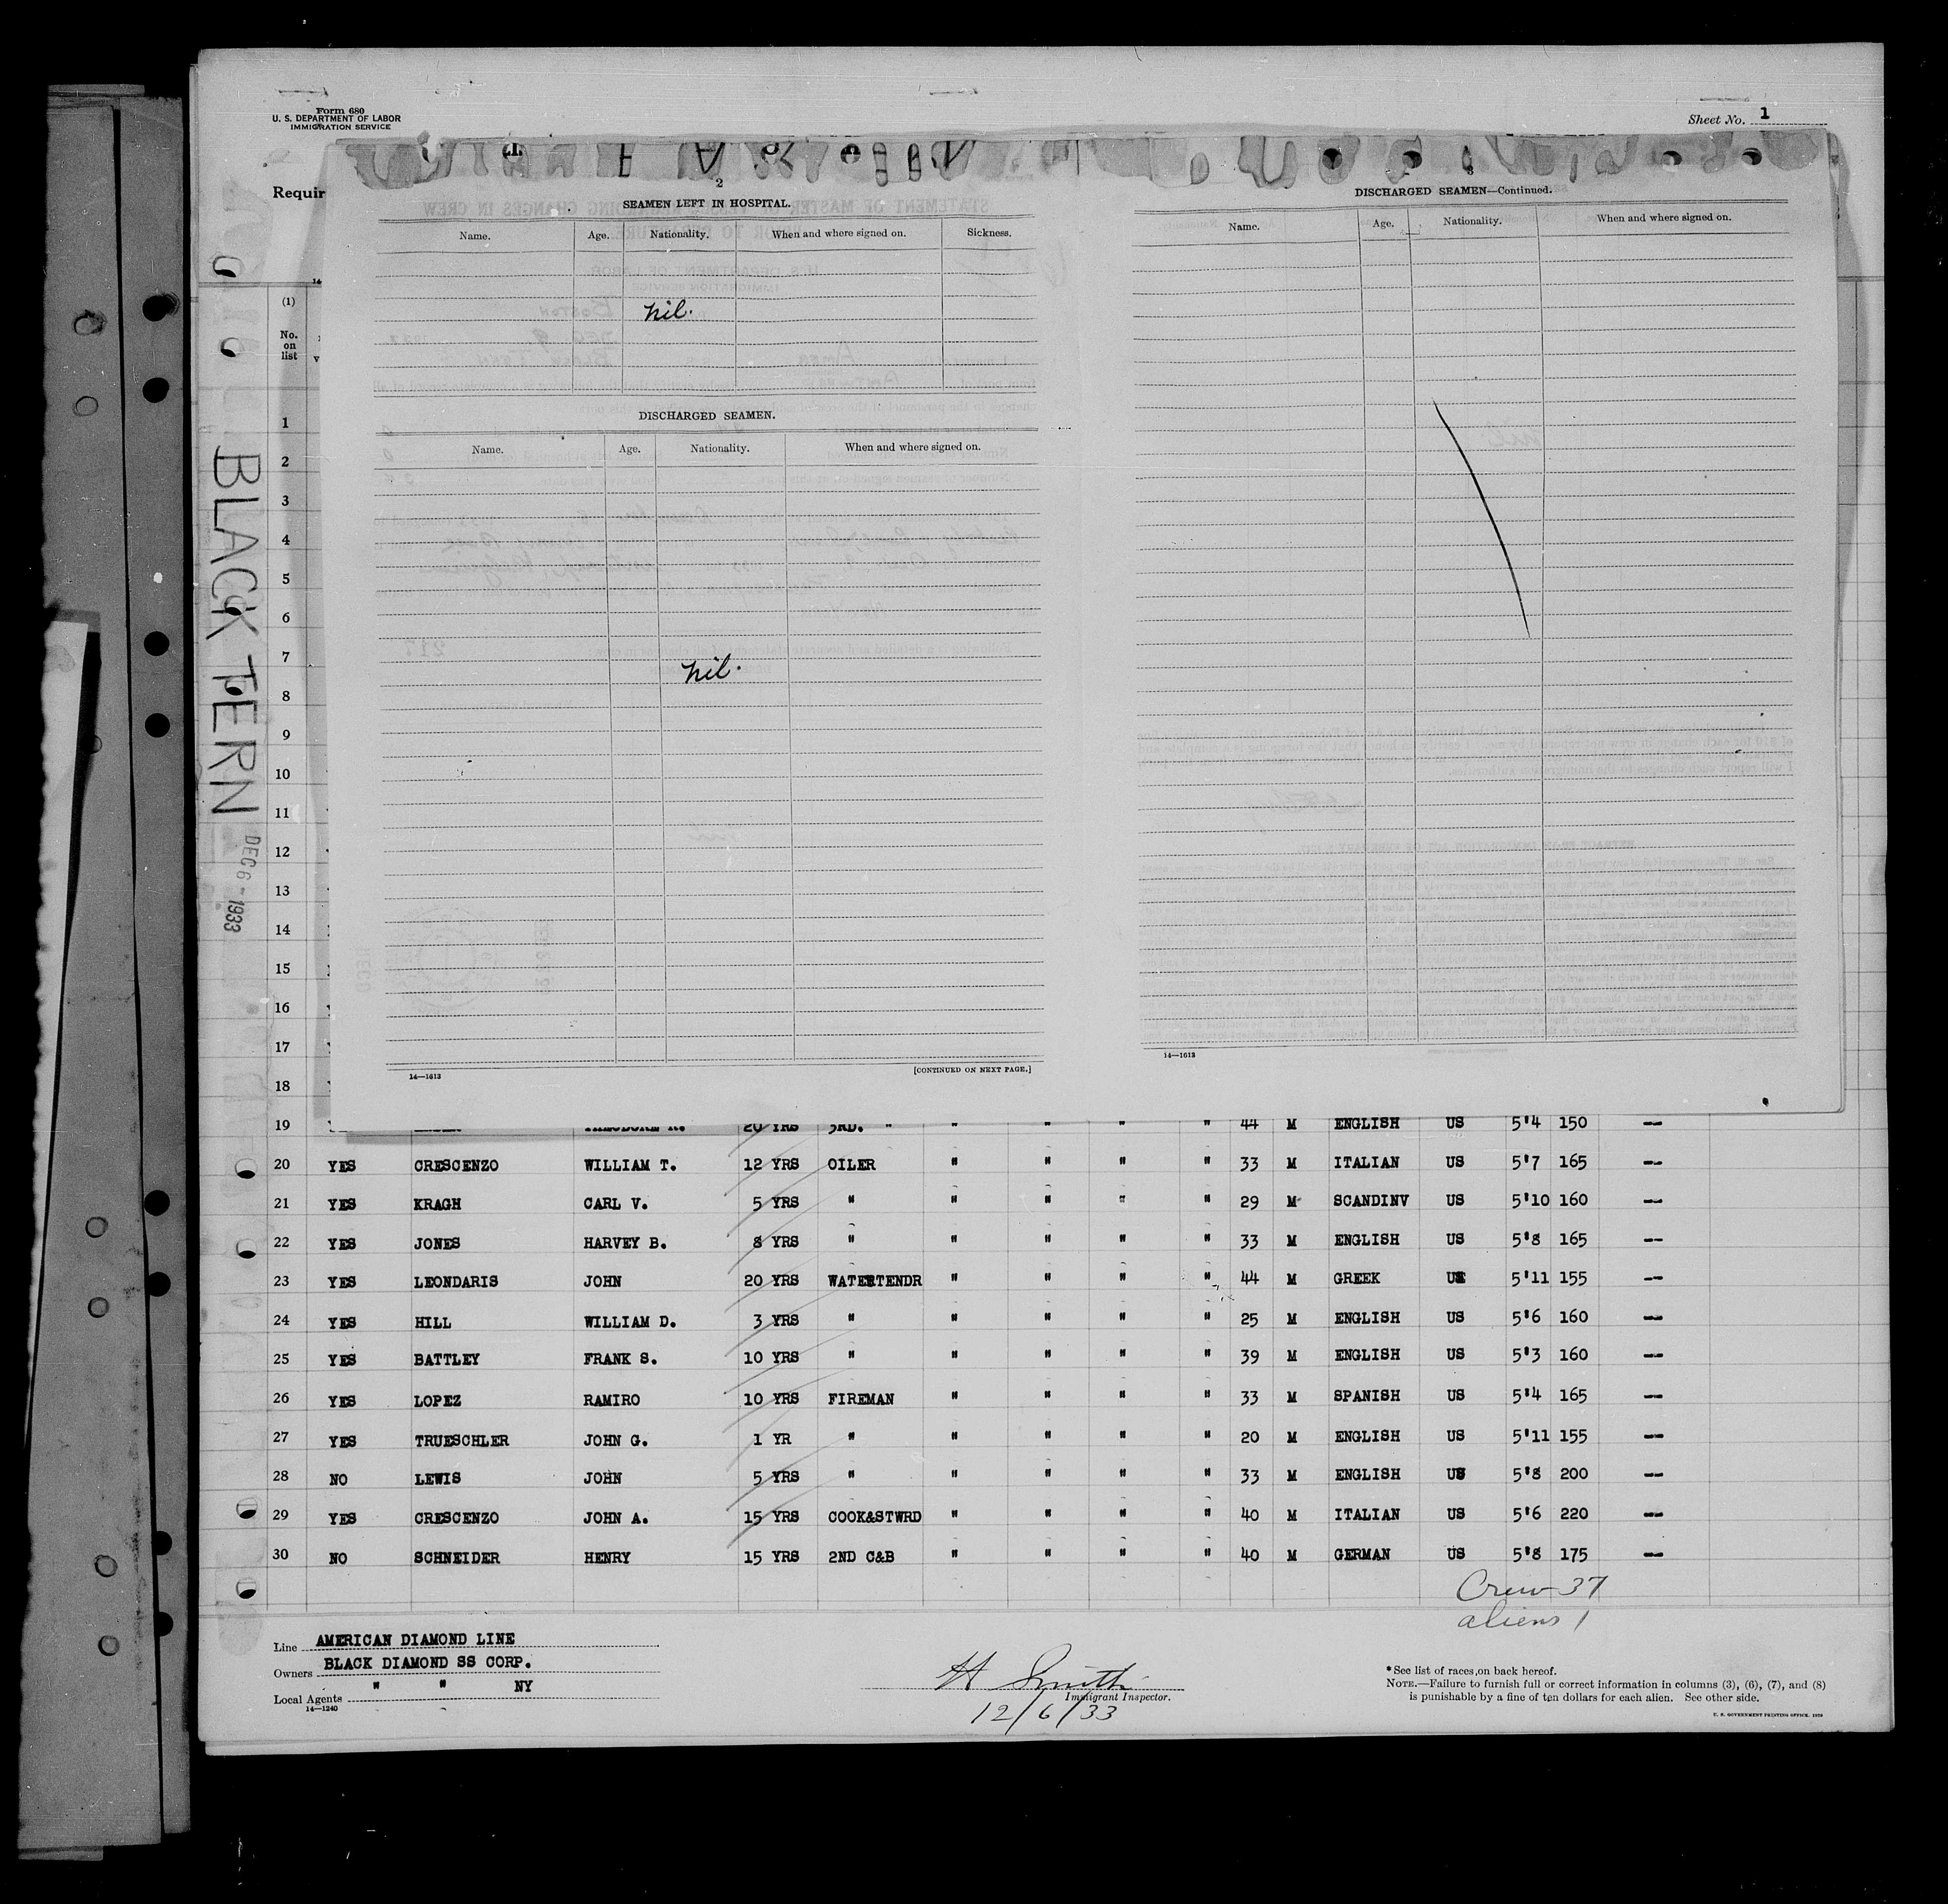 Form 680
U. S. DEPARTMENT OF LABOR
IMMIGRATION SERVICE
Sheet No. 1
Requir
2
SEAMEN LEFT IN HOSPITAL.
Name. Age. Nationality. When and where signed on. Sickness.
nil.
DISCHARGED SEAMEN.
Name. Age. Nationality. When and where signed on.
nil.
14—1613 [CONTINUED ON NEXT PAGE.]
3
DISCHARGED SEAMEN—Continued.
Name. Age. Nationality. When and where signed on.
14—1613
BLACK TERN
DEC 6 - 1933
(1)
No.
on
list
1
2
3
4
5
6
7
8
9
10
11
12
13
14
15
16
17
18
19 20 YRS 3RD. " " " " " 44 M ENGLISH US 5'4 150 --
20 YES CRESCENZO WILLIAM T. 12 YRS OILER " " " " 33 M ITALIAN US 5'7 165 --
21 YES KRAGH CARL V. 5 YRS " " " " " 29 M SCANDINV US 5'10 160 --
22 YES JONES HARVEY B. 8 YRS " " " " " 33 M ENGLISH US 5'8 165 --
23 YES LEONDARIS JOHN 20 YRS WATERTENDR " " " " 44 M GREEK US 5'11 155 --
24 YES HILL WILLIAM D. 3 YRS " " " " " 25 M ENGLISH US 5'6 160 --
25 YES BATTLEY FRANK S. 10 YRS " " " " " 39 M ENGLISH US 5'3 160 --
26 YES LOPEZ RAMIRO 10 YRS FIREMAN " " " " 33 M SPANISH US 5'4 165 --
27 YES TRUESCHLER JOHN G. 1 YR " " " " " 20 M ENGLISH US 5'11 155 --
28 NO LEWIS JOHN 5 YRS " " " " " 33 M ENGLISH US 5'8 200 --
29 YES CRESCENZO JOHN A. 15 YRS COOK&STWRD " " " " 40 M ITALIAN US 5'6 220 --
30 NO SCHNEIDER HENRY 15 YRS 2ND C&B " " " " 40 M GERMAN US 5'8 175 --
Crew 37
aliens 1
Line AMERICAN DIAMOND LINE
Owners BLACK DIAMOND SS CORP.
Local Agents " " NY
14—1240
H Smith
Immigrant Inspector.
12/6/33
*See list of races on back hereof.
NOTE.—Failure to furnish full or correct information in columns (3), (6), (7), and (8)
is punishable by a fine of ten dollars for each alien. See other side.
U. S. GOVERNMENT PRINTING OFFICE. 1929